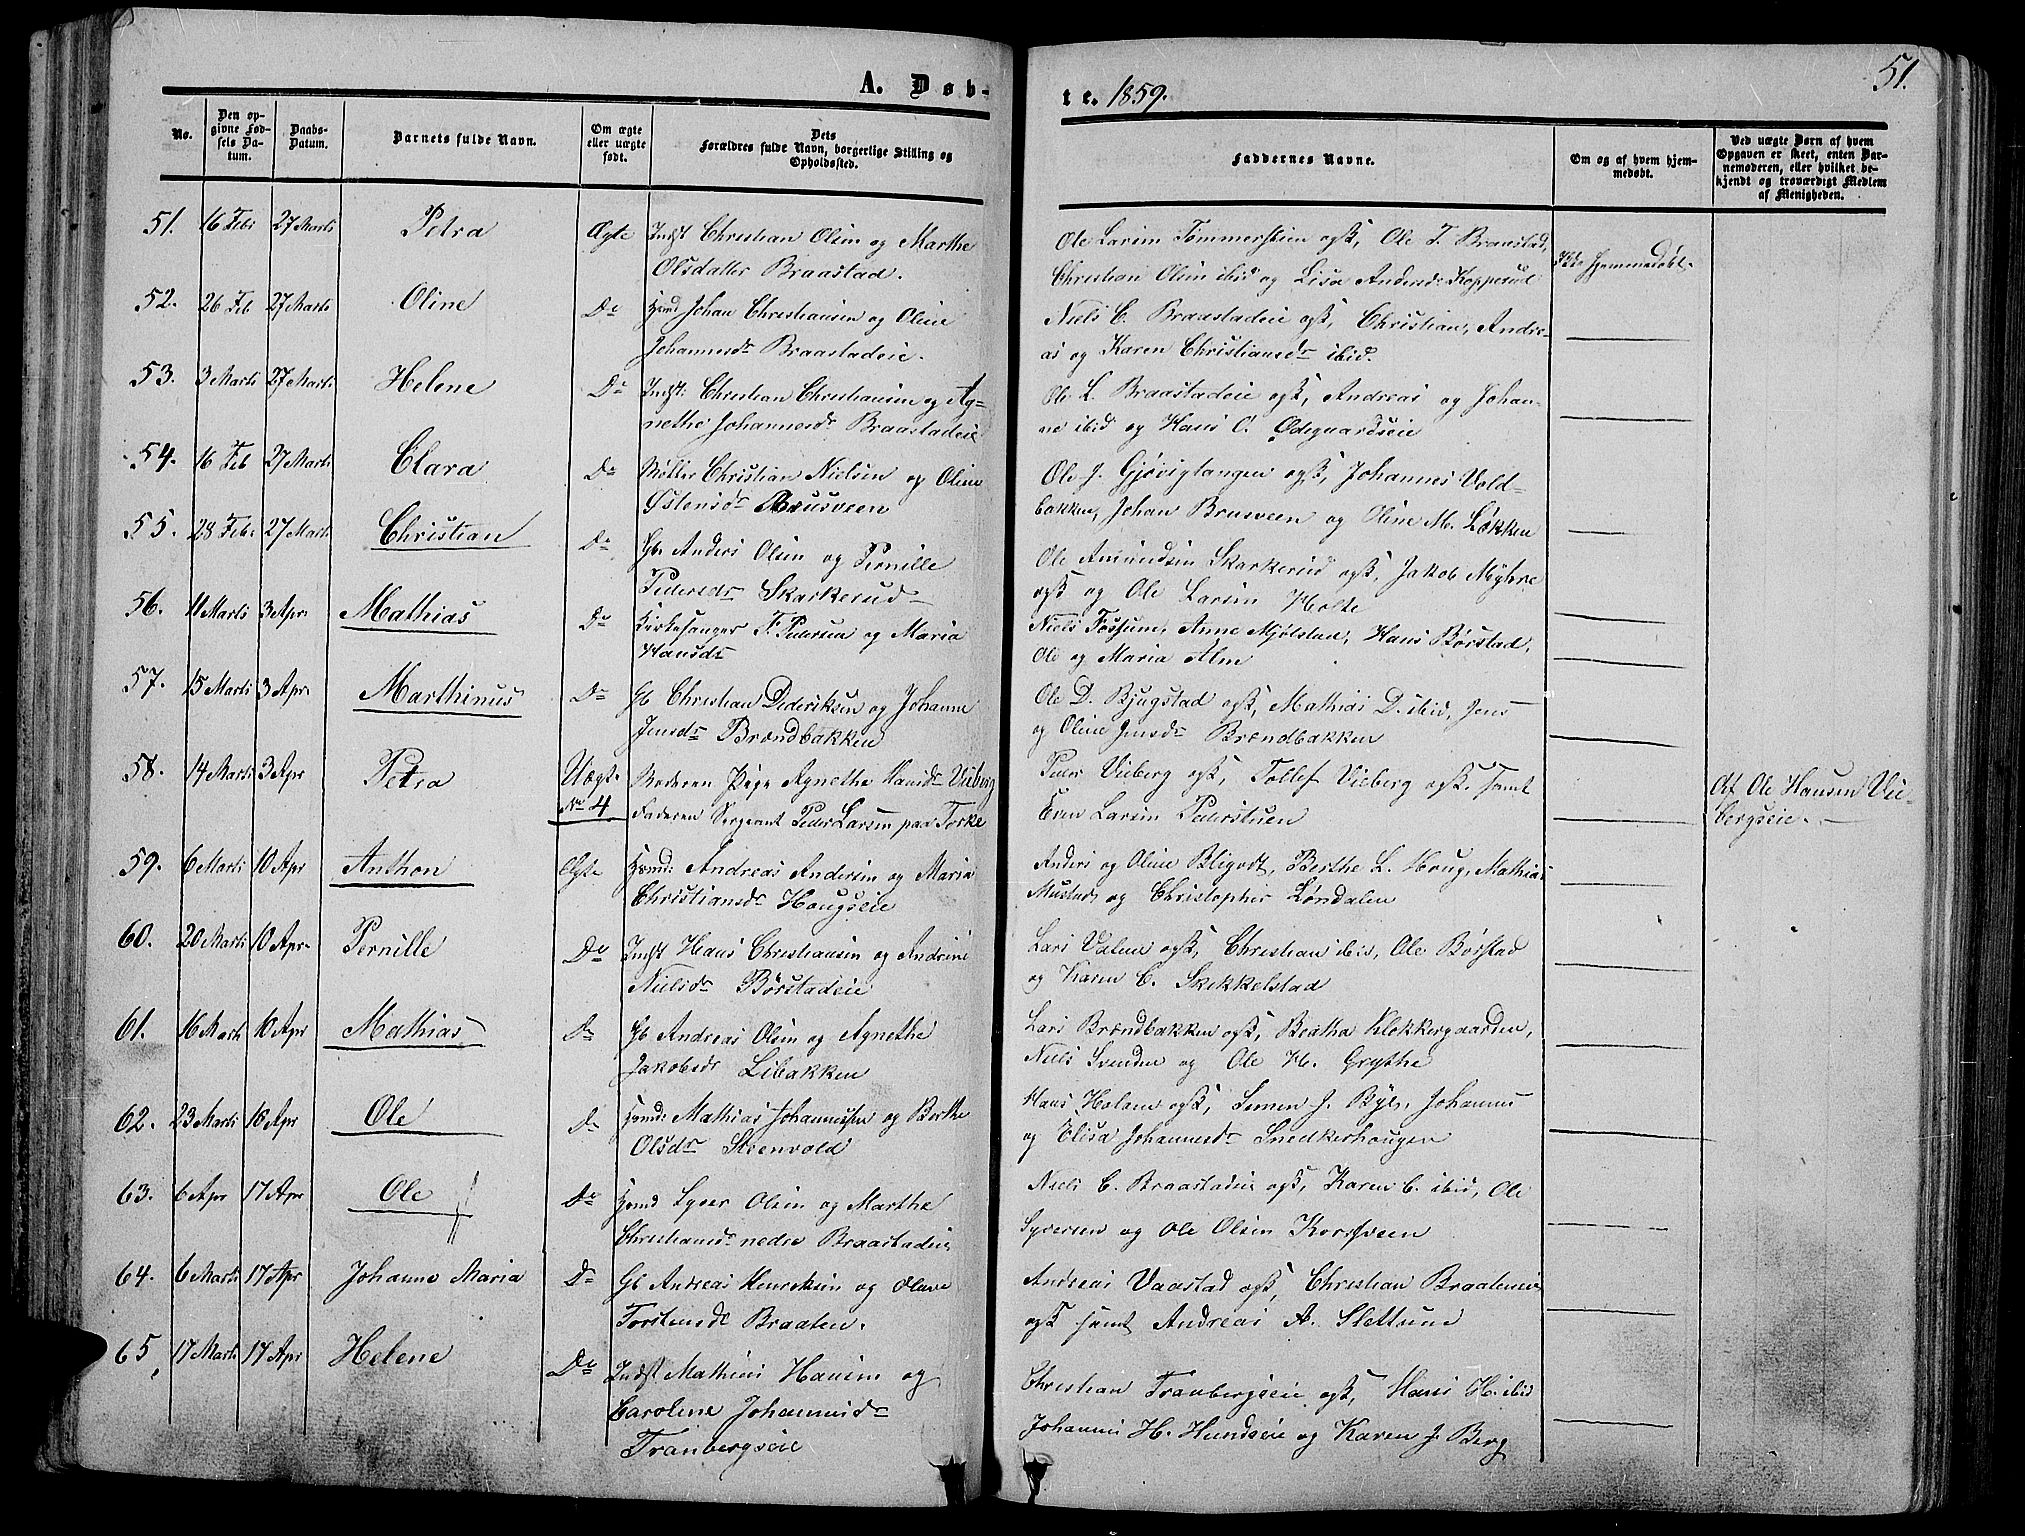 51.
A. Døb-
te. 1859.
No.
Den op-
givne Fød-
sels Da-
tum.
Daabs-
Datum.
Barnets fulde Navn.
Om ægte
eller uægte
født.
Dets
Forældres fulde Navn, borgerlige Stilling og
Opholdssted.
Faddernes Navne.
Om og af hvem hjem-
medøbt.
Ved uægte Børn af hvem
Opgaven er skeet, enten Bar-
nemoderen, eller hvilket be-
kjendt og troværdigt Medlem
af Menigheden.
51. 16 Feb: 27 Marts Petra Ægte Indst Christian Olsen og Marthe
Olsdatter Braastad.
Ole Larsen Tommerstien ogst, Ole T. Braastad,
Christian Olsen ibid og Lisa Andersd: Kopperud
Hjemmedøbt.
52. 26 Feb 27 Marts Oline Do Hmd Johan Christiansen og Oline
Johannesdr Braastadeie.
Niels C. Braastadeie ogst, Christian, Andre-
as og Karen Christiansdr ibid.
53. 3 Marts 27 Marts Helene Do Indst: Christian Christiansen og Ag-
nethe Johannesdr Braastadeie
Ole L. Braastadeie ogst, Andreas og Johan-
ne ibid og Hans C. Ødegaardseie
54. 16 Feb 27 Marts Clara Do Møller Christian Nielsen og Oline
Østensdr Bruusveen
Ole J. Gjøvigtangen ogst, Johannes Vold-
bakken, Johan Brusveen og Oline M. Løkken
55. 28 Feb: 27 Marts Christian Do Gb. Anders Olsen og Pernille
Pedersdr Skarkerud
Ole Amundsen Skarkerud ogst, Jakob Myhre
ogst og Ole Larsen Holte
56. 11 Marts 3 Apr. Mathias Do Kirkesanger F. Pedersen og Maria
Hansdr
Niels Fossum, Anne Mjølstad, Hans Børstad,
Ole og Maria Alm
57. 15 Marts 3 Apr. Marthinus Do Gb Christian Dideriksen og Johanne
Jensdr Brændbakken
Ole D. Bjugstad ogst, Mathias D. ibid, Jens
og Oline Jensdr Brændbakken
58. 14 Marts 3 Apr Petra Uægt. Moderen Pige Agnethe Hansdr Vieberg
No 4 Faderen Sergeant Peder Larsen paa Torke
Peder Vieberg ogst, Tollef Vieberg ogst. samt
Even Larsen Pederstuen
Af Ole Hansen Vie-
bergseie.
59. 6 Marts 10 Apr Anthon Ægte Hmd: Andreas Andersen og Maria
Christiansdr Hougseie
Anders og Oline Bligodt, Berthe L. Houg, Mathias
Mustad, og Christopher Løndalen
60. 20 Marts 10 Apr. Pernille Do Indst Hans Christiansen og Andrine
Nielsdr Børstadeie
Lars Valen ogst, Christian ibid, Ole Børstad
og Karen C. Skikkelstad
61. 16 Marts 10 Apr Mathias Do Gb Andreas Olsen og Agnethe
Jakobsdr Libakken
Lars Brændbakken ogst, Beatha Klokkergaarden,
Niels Svenden og Ole H. Grythe
62. 23 Marts 10 Apr Ole Do Hmd: Mathias Johannessen og Berthe
Olsdr Steenvold
Hans Holam ogst, Simen J. Bye, Johannes
og Elisa Johannesdr Snedkerhaugen
63. 6 Apr 17 Apr Ole Do Hmd Syver Olsen og Marthe
Christiansdr nedre Braastadeie
Niels C. Braastadeie ogst, Karen C. ibid, Ole
Syversen og Ole Olsen Korsveen
64. 6 Marts 17 Apr Johanne Maria Do Gb Andreas Henriksen og Olave
Torstensdr Braaten.
Andreas Vaastad ogst, Christian Braateneie
ogst samt Andreas A. Slettune
65 17 Marts 17 Apr Helene Do Indst Mathias Hansen og
Caroline Johannesdr
Tranbergseie
Christian Tranbergseie ogst, Hans H. ibid
Johannes H. Hundseie og Karen J. Berg